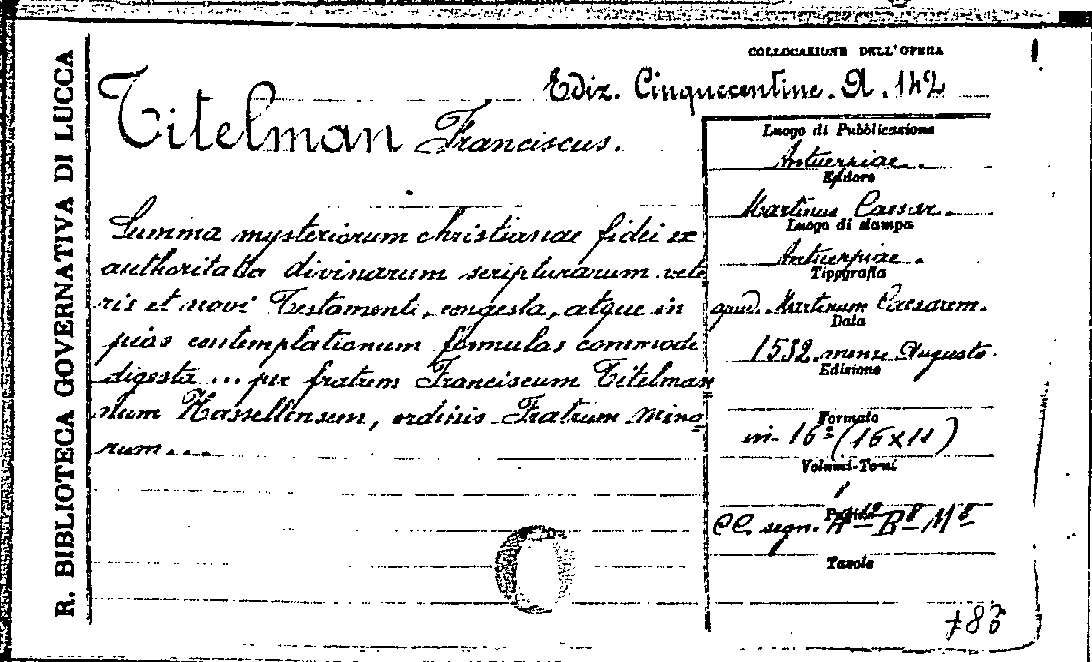 R. BIBLIOTECA GOVERNATIVA DI LUCCA
COLLOCAZIONE DELL'OPERA
Ediz. Cinquecentine. A. 142
Titelman Franciscus.
Summa mysteriorum christianae fidei ex
authoritate divinarum scripturarum vete
ris et novi Testamenti, congesta, atque in
pias contemplationum formulas commode
digesta ... per fratrem Franciscum Titelman
num Hassellensem, ordinis Fratrum Mino
rum ...
Luogo di Pubblicazione
Antuerpiae.
Editore
Martinus Caesar.
Luogo di stampa
Antuerpiae.
Tipografia
apud. Martinum Caesarem.
Data
1532. mense Augusto.
Edizione
Formato
in-16º (16x11)
Volumi-Tomi
1
CC. segn. B8 M8
Tavole
783